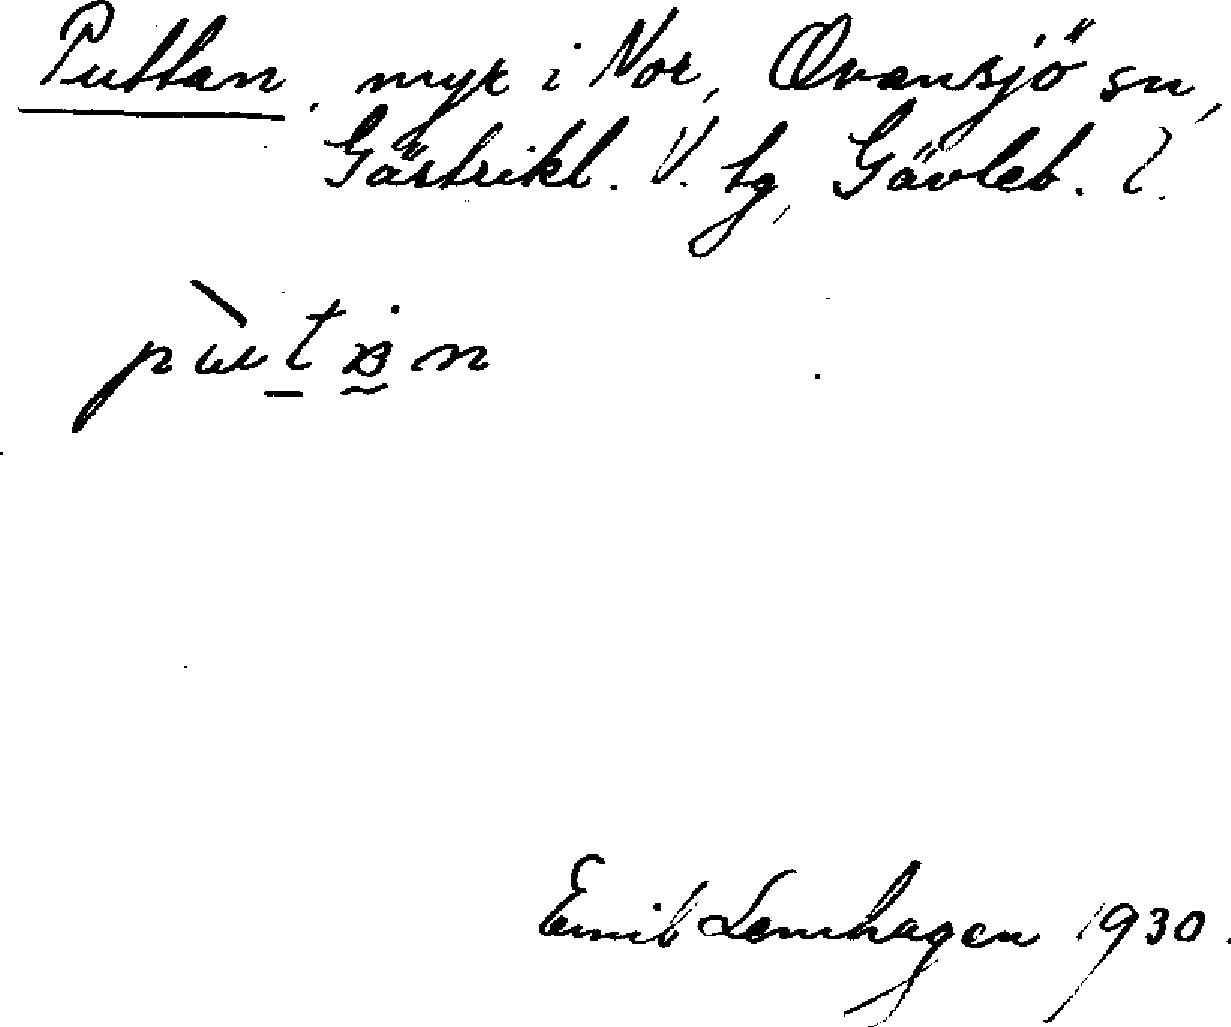 Puttan, myr i Nor, Ovansjö sn,
Gästrikl. V. tg, Gävleb. l.
Emil Lemhagen 1930.